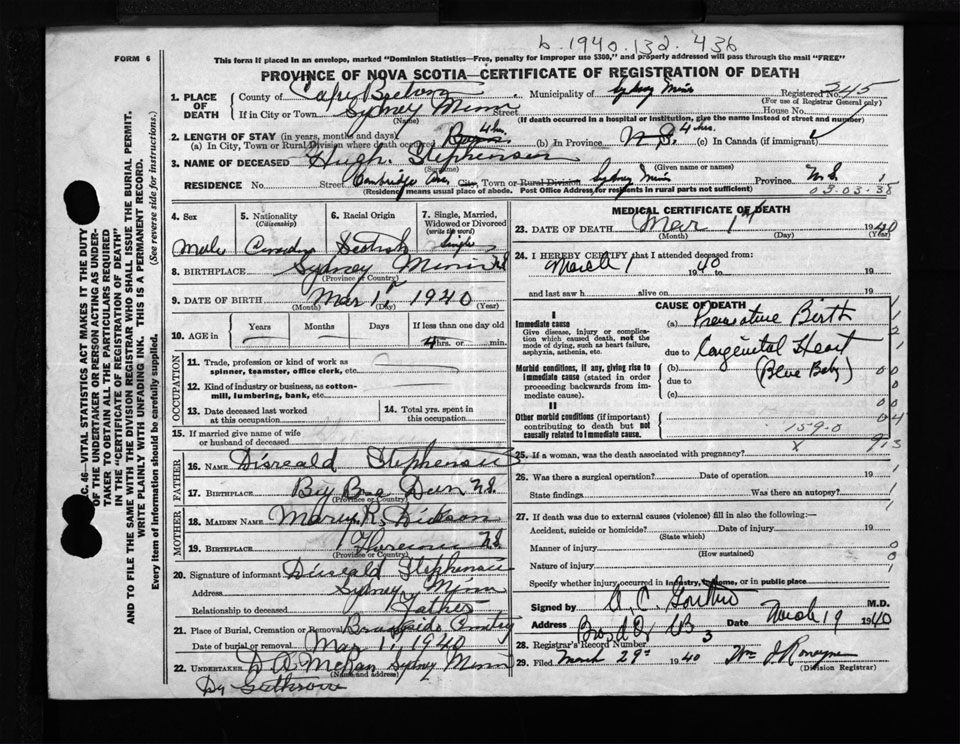 b. 1940. 132. 436
FORM 6
This form If placed in an envelope, marked "Dominion Statistics—Free, penalty for improper use $300," and properly addressed will pass through the mail "FREE"
PROVINCE OF NOVA SCOTIA—CERTIFICATE OF REGISTRATION OF DEATH
1. PLACE OF DEATH
County of Cape Breton Municipality of Sydney Mines Registered No. 245
(For use of Registrar General only)
If in City or Town Sydney Mines Street House No.
(Name) (If death occurred in a hospital or institution, give the name instead of street and number)
2. LENGTH OF STAY (in years, months and days)
(a) In City, Town or Rural Division where death occurred 4 hrs. (b) In Province N.S. 4 hrs. (c) In Canada (if immigrant)
3. NAME OF DECEASED Hugh Stephenson
(Surname) (Given name or names)
RESIDENCE No. Street Cambridge Ave. City, Town or Rural Division Sydney Mines Province N.S.
(Residency means usual place of abode. Post Office Address for residents in rural parts not sufficient)
03-03-38
4. Sex Male
5. Nationality (Citizenship)
6. Racial Origin Scottish
7. Single, Married, Widowed or Divorced (write the word) Single
8. BIRTHPLACE Sydney Mines N.S.
(Province or Country)
9. DATE OF BIRTH Mar 1 1940
(Month) (Day) (Year)
10. AGE in Years Months Days If less than one day old
4 hrs. or min.
OCCUPATION
11. Trade, profession or kind of work as spinner, teamster, office clerk, etc.
12. Kind of industry or business, as cotton-mill, lumbering, bank, etc.
13. Date deceased last worked at this occupation
14. Total yrs. spent in this occupation
15. If married give name of wife or husband of deceased
FATHER
16. NAME Stephenson
17. BIRTHPLACE N.S.
(Province or Country)
MOTHER
18. MAIDEN NAME Mary R. Dickson
19. BIRTHPLACE Florence N.S.
(Province or Country)
20. Signature of informant Stephenson
Address Sydney Mines
Relationship to deceased Father
21. Place of Burial, Cremation or Removal Brookside
Date of burial or removal Mar 1 1940
22. UNDERTAKER Sydney Mines
(Name and address)
MEDICAL CERTIFICATE OF DEATH
23. DATE OF DEATH Mar 1st 1940
(Month) (Day) (Year)
24. I HEREBY CERTIFY that I attended deceased from:
March 1 1940 to 19
and last saw h alive on 19
CAUSE OF DEATH
I
Immediate cause
Give disease, injury or complication which caused death, not the mode of dying, such as heart failure, asphyxia, asthenia, etc.
(a) Premature Birth
due to Congenital Heart
Morbid conditions, if any, giving rise to immediate cause (stated in order proceeding backwards from immediate cause).
(b) (Blue Baby)
due to
(c)
II
Other morbid conditions (if important) contributing to death but not causally related to immediate cause.
159-0
25. If a woman, was the death associated with pregnancy? x
26. Was there a surgical operation? Date of operation 19
State findings Was there an autopsy?
27. If death was due to external causes (violence) fill in also the following:
Accident, suicide or homicide? Date of injury 19
(State which)
Manner of injury
(How sustained)
Nature of injury
Specify whether injury occurred in industry, in home, or in public place
Signed by M.D.
Address Date March 19 1940
28. Registrar's Record Number 3
29. Filed March 29 1940
(Division Registrar)
OF THE UNDERTAKER OR PERSON ACTING AS UNDERTAKER TO OBTAIN ALL THE PARTICULARS REQUIRED IN THE "CERTIFICATE OF REGISTRATION OF DEATH"
AND TO FILE THE SAME WITH THE DIVISION REGISTRAR WHO SHALL ISSUE THE BURIAL PERMIT.
WRITE PLAINLY WITH UNFADING INK. THIS IS A PERMANENT RECORD.
Every item of information should be carefully supplied. (See reverse side for instructions.)